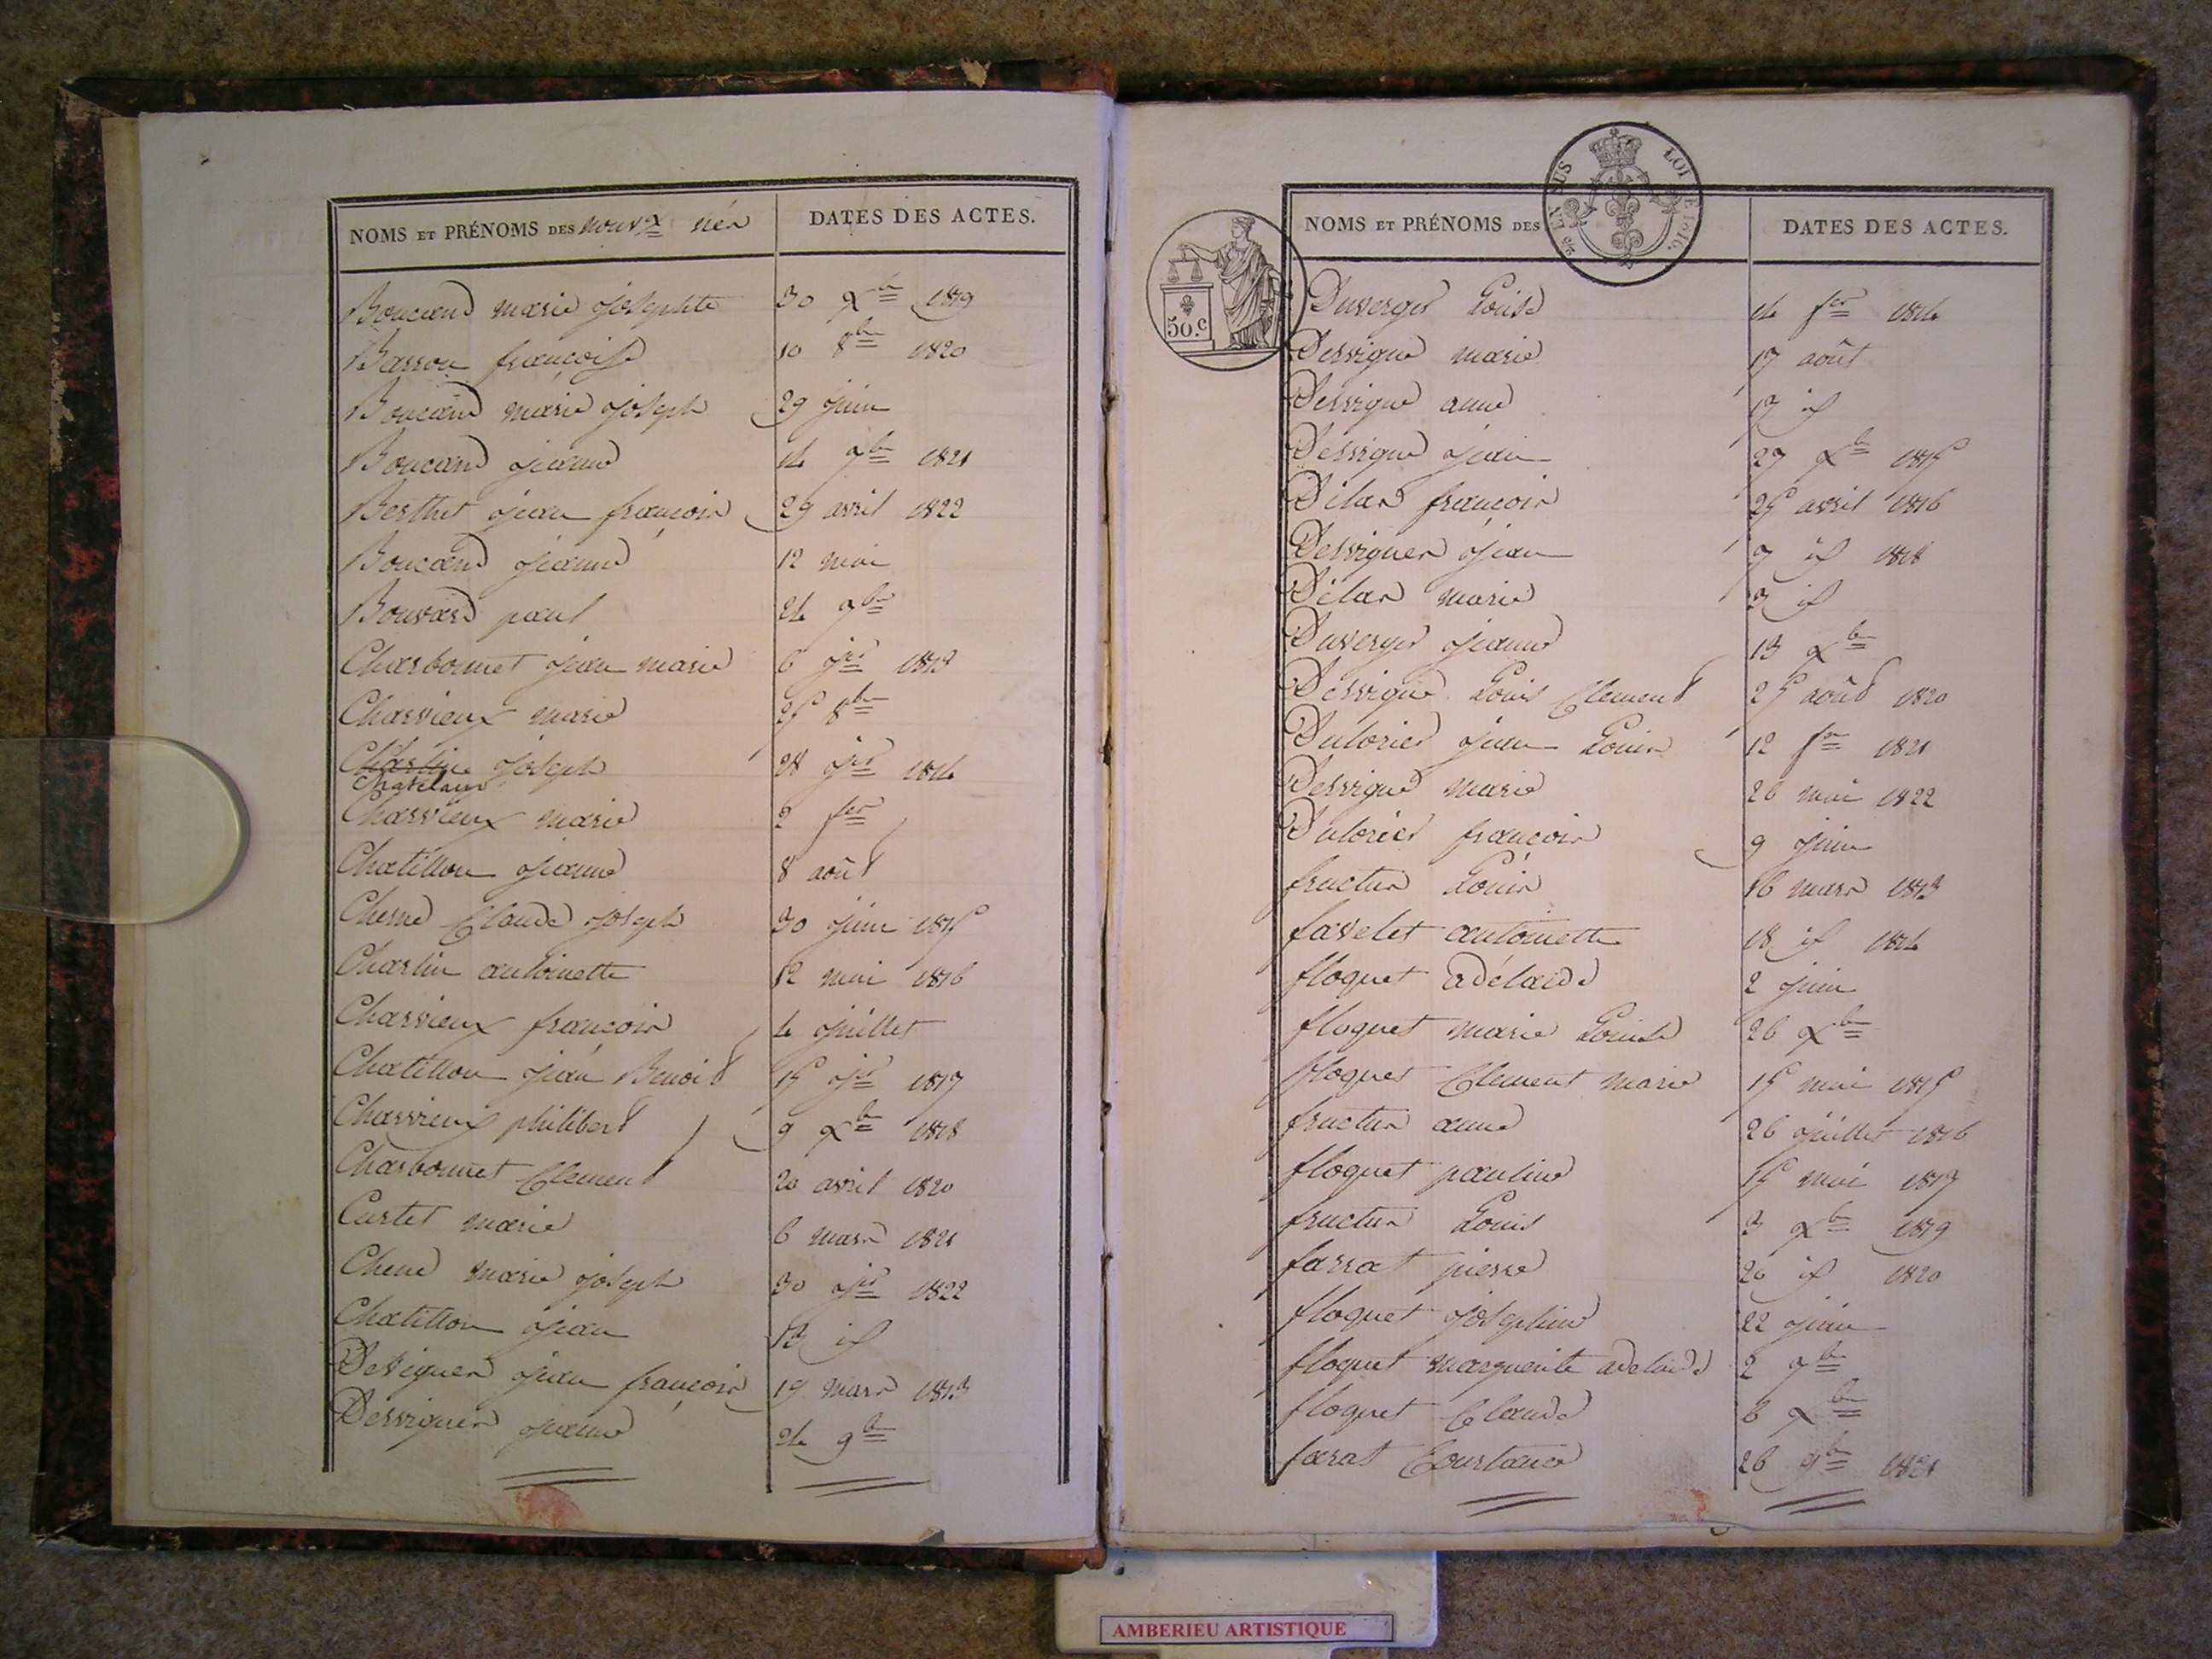 NOMS ET PRÉNOMS DES nouvx nés DATES DES ACTES.
Boucand marie josephte 30 Xbre 1819
Barron françoise 10 8bre 1820
Boucand marie joseph 29 juin
Boucand jeanne 14 7bre 1821
Berthet jean françois 29 avril 1822
Boucand jeanne 12 mai
Bouvard paul 24 9bre
Charbonnet jean marie 6 jer 1813
Charvieux marie 25 8bre
Charline joseph 28 jer 1814
Chatelain
Charvieux marie 2 fer
Chatillon jeanne 8 août
Chesne Claude joseph 30 juin 1815
Charlin antoinette 12 mai 1816
Charvieux françois 4 juillet
Chatillon jean Benoit 15 jer 1817
Charvieux philibert 9 Xbre 1818
Charbonnet Clement 20 avril 1820
Curtet marie 6 mars 1821
Chene marie joseph 30 jer 1822
Chatillon jean 13 id
Devignes jean françois 19 mars 1813
Dervignes jeanne 24 9bre
NOMS ET PRÉNOMS DES DATES DES ACTES.
LOI DE 1816.
EN SUS
50.c
Duverger Louise 14 fer 1814
Dervigne marie 17 août
Dervigne anne 17 id
Dervigne jean 27 Xbre 1815
Délas françois 25 avril 1816
Dervignes jean 7 id 1818
Délas marie 3 id
Duverger jeanne 13 Xbre
Dervigne Louis Clement 25 août 1820
Dulorier jean Louis 12 fer 1821
Dervigne marie 26 mai 1822
Dulorier françois 9 juin
fructus Louis 16 mars 1813
favelet antoinette 18 id 1814
floquet adélaide 2 juin
floquet marie Louise 26 Xbre
floquet Clement marie 15 mai 1815
fructus anne 26 juillet 1816
floquet pauline 15 mai 1817
fructus Louis 3 Xbre 1819
farrat pierre 20 id 1820
floquet joséphine 22 juin
floquet marguerite adelaide 2 7bre
floquet Claude 6 Xbre
farat Constance 26 9bre 1821
AMBERIEU ARTISTIQUE